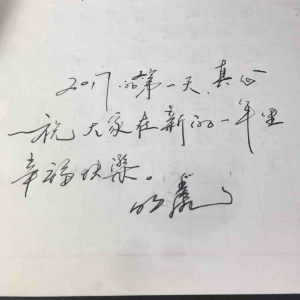 2017的第一天、真心
祝大家在新的一年里
幸福快乐。